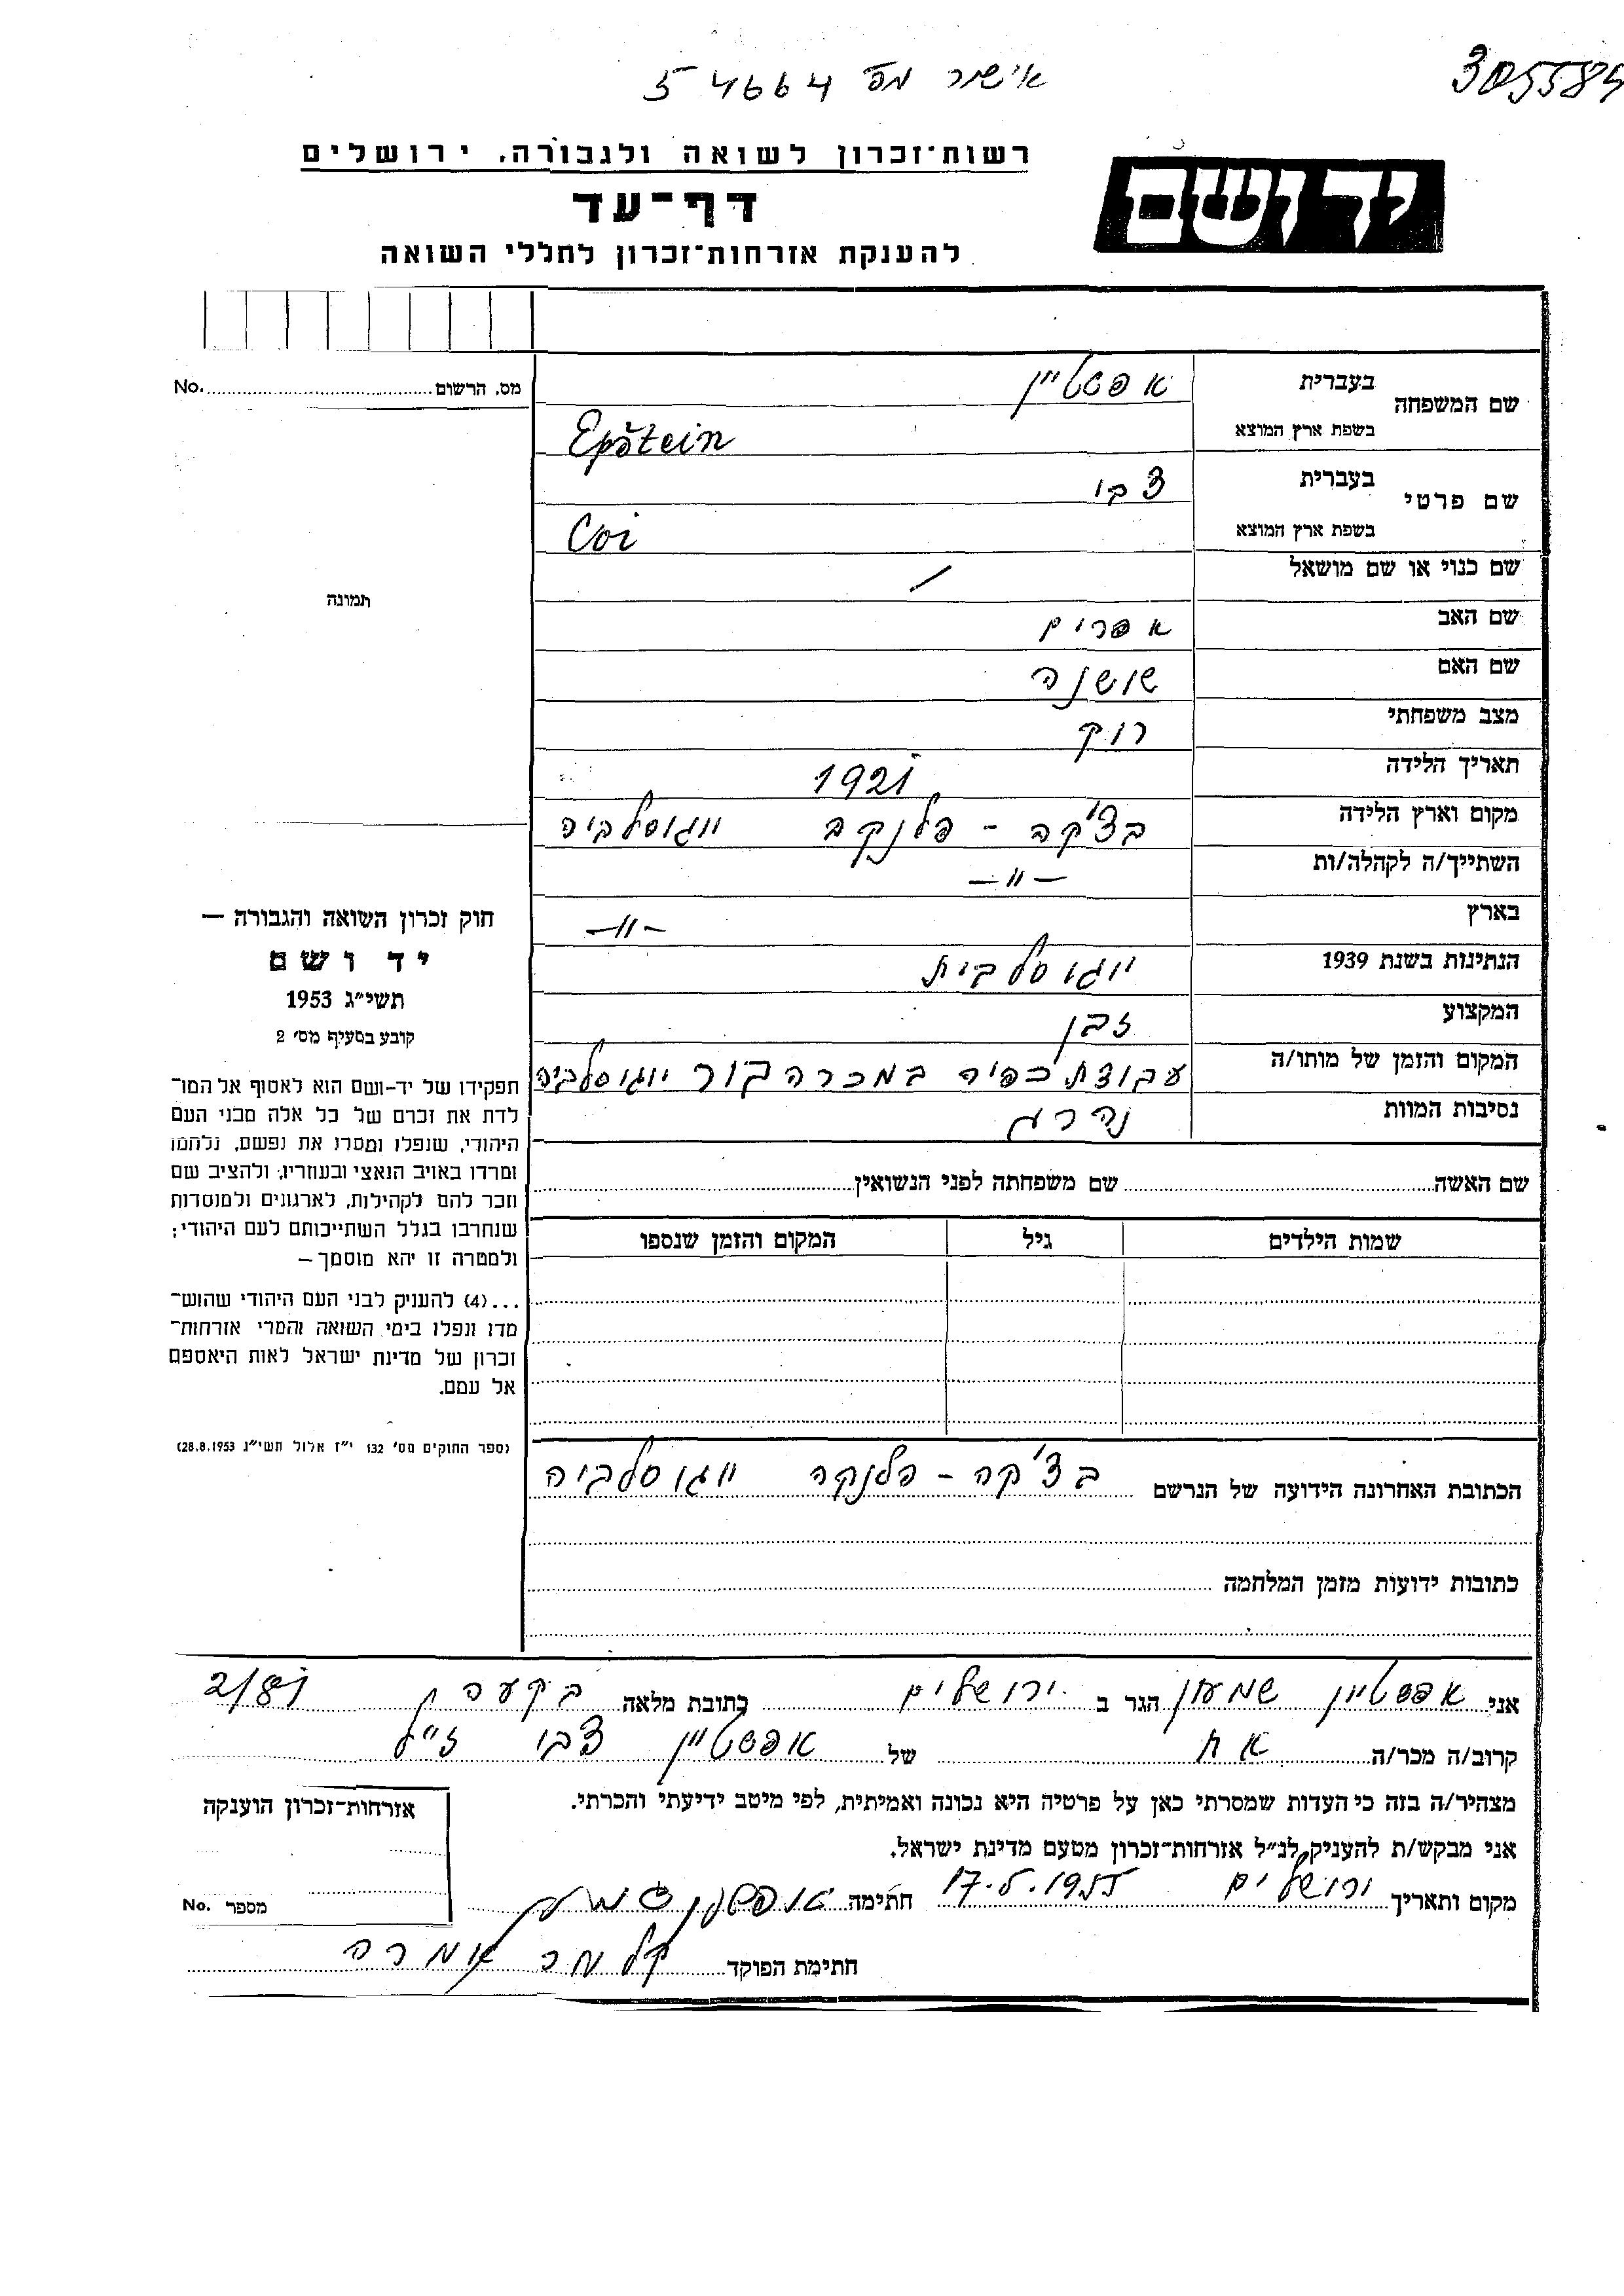 305584
אישור מס 54664
רשות־זכרון לשואה ולגבורה, ירושלים
יד ושם
דף־עד
להענקת אזרחות־זכרון לחללי השואה
מס. הרשום No.
תמונה
שם המשפחה בעברית אפשטיין
בשפת ארץ המוצא Epštein
שם פרטי בעברית צבי
בשפת ארץ המוצא Cvi
שם כנוי או שם מושאל /
שם האב אפרים
שם האם שושנה
מצב משפחתי רוק
תאריך הלידה 1921
מקום וארץ הלידה בצ'קה - פלנקה יוגוסלביה
השתייך/ה לקהלה/ות -"-
בארץ -"-
הנתינות בשנת 1939 יוגוסלבית
המקצוע זבן
המקום והזמן של מותו/ה עבודת כפיה במכרה בור יוגוסלביה
נסיבות המוות נהרג
שם האשה שם משפחתה לפני הנשואין
שמות הילדים גיל המקום והזמן שנספו
חוק זכרון השואה והגבורה —
יד ושם
תשי״ג 1953
קובע בסעיף מס׳ 2
תפקידו של יד-ושם הוא לאסוף אל המו־
לדת את זכרם של כל אלה מבני העם
היהודי, שנפלו ומסרו את נפשם, נלחמו
ומרדו באויב הנאצי ובעוזריו, ולהציב שם
וזכר להם לקהילות, לארגונים ולמוסדות
שנחרבו בגלל השתייכותם לעם היהודי;
ולמטרה זו יהא מוסמך —
...(4) להעניק לבני העם היהודי שהוש־
מדו ונפלו בימי השואה והמרי אזרחות־
זכרון של מדינת ישראל לאות היאספם
אל עמם.
(ספר החוקים מס׳ 132 י״ז אלול תשי״ג 28.8.1953)
הכתובת האחרונה הידועה של הנרשם בצ'קה - פלנקה יוגוסלביה
כתובות ידועות מזמן המלחמה
אני אפשטיין שמעון הגר ב ירושלים כתובת מלאה בקעה 2/81
קרוב/ה מכר/ה אח של אפשטיין צבי ז"ל
מצהיר/ה בזה כי העדות שמסרתי כאן על פרטיה היא נכונה ואמיתית, לפי מיטב ידיעתי והכרתי.
אני מבקש/ת להעניק לנ״ל אזרחות־זכרון מטעם מדינת ישראל.
מקום ותאריך ירושלים 17.5.1955 חתימה אפשטיין שמעון
חתימת הפוקד
אזרחות־זכרון הוענקה
מספר No.